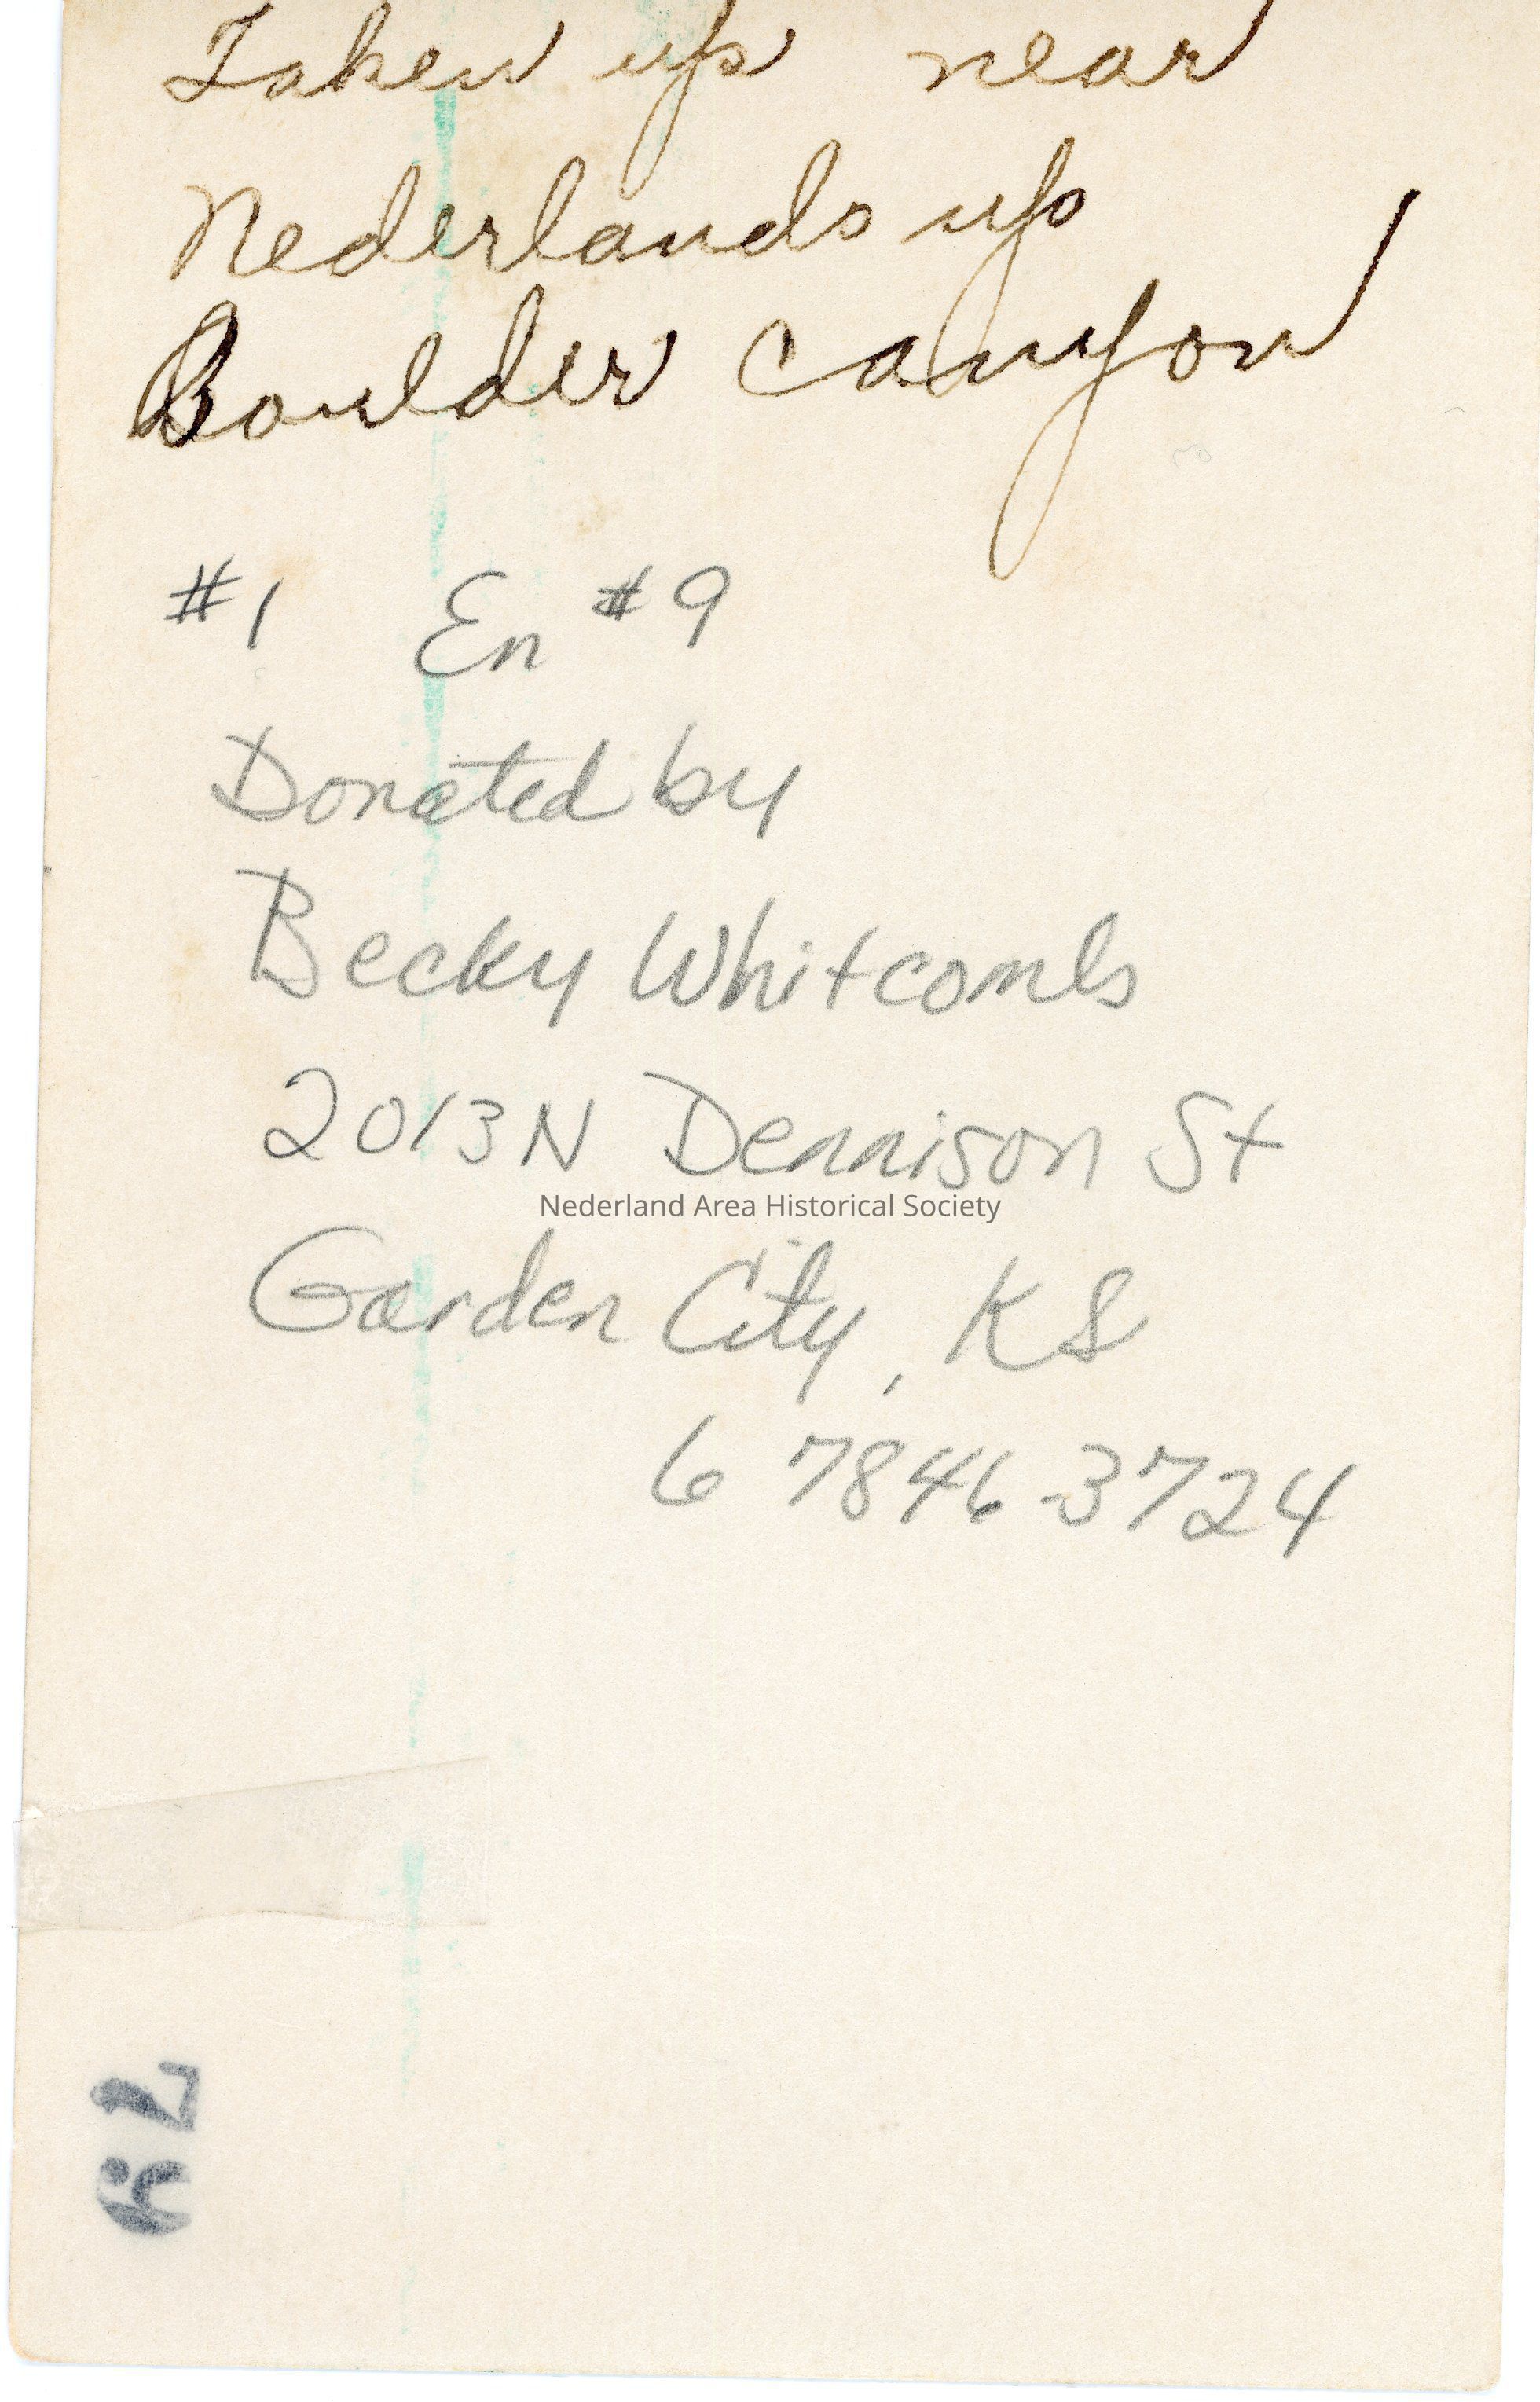 Taken up near
Nederlands up
Boulder Canyon
#1 En #9
Donated by
Becky Whitcomb
2013 N Dennison St
Nederland Area Historical Society
Garden City, KS
67846-3724